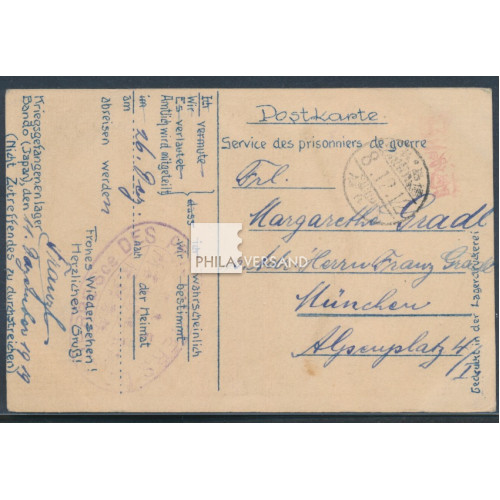 Postkarte.
Service des prisonniers de guerre
Frl.
Margarethe Gradl
Herrn Franz Gradl
München
Alpenplatz 4/I
Gedruckt in der Lagerdruckerei
Ich vermute
Wir
Es verlautet
Amtlich wird mitgeteilt
dass
ich
wir
wahrscheinlich
bestimmt
am 26. Dez. nach der Heimat
abreisen werden
Frohes Wiedersehen!
Herzlichen Gruß!
Kriegsgefangenenlager
Bando (Japan), den 11. Dezember 1919
(Nicht Zutreffendes zu durchstreichen)
PHILA VERSAND